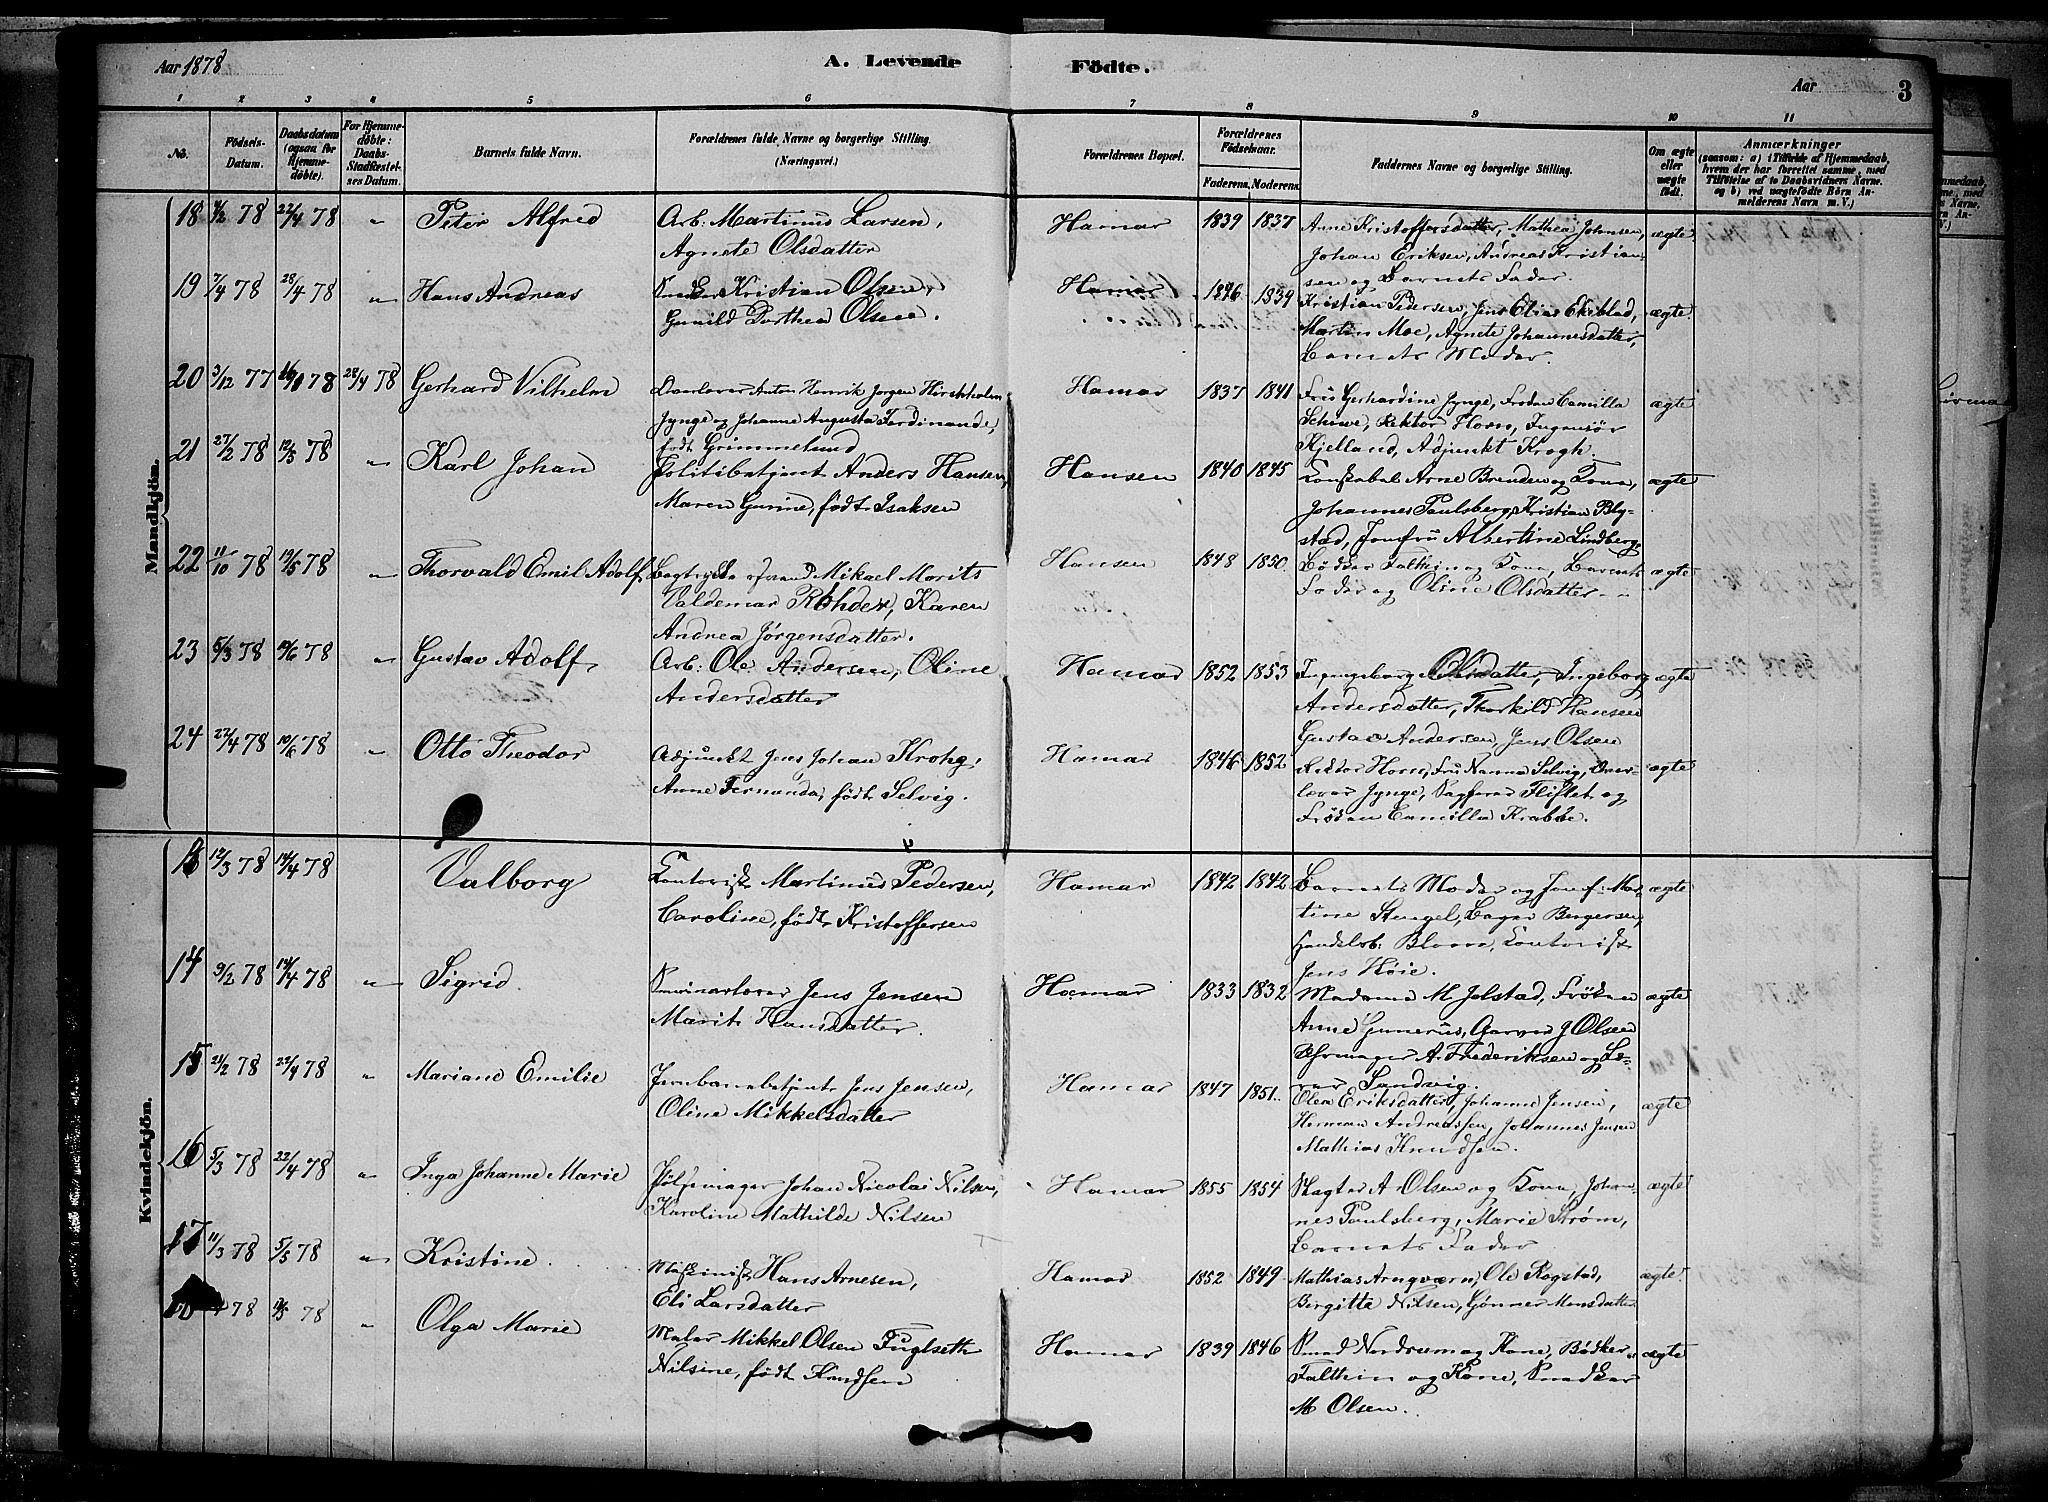 Aar 1878
A. Levende Födte.
Aar 3
1 2 3 4 5 6 7 8 9 10 11
No.
Födsels-Datum.
Daabsdatum (ogsaa for Hjemmedöbte).
For Hjemmedöbte: Daabs-Stadfæstelses Datum.
Barnets fulde Navn.
Forældrenes fulde Navne og borgerlige Stilling. (Næringsvei.)
Forældrenes Bopæl.
Forældrenes Födselsaar.
Faderens. Moderens.
Faddernes Navne og borgerlige Stilling.
Om ægte eller uægte födt.
Anmærkninger
(saasom: a) i Tilfælde af Hjemmedaab, hvem der har forrettet samme, med Tilföielse af to Daabsvidners Navne. og b) ved uægtefödte Börn Anmelderens Navn m. V.)
Mandkjön.
18 78 22/4 78 " Peter Alfred
Arb: Martinus Larsen,
Agnete Olsdatter
Hamar 1839 1837
Anne Kristoffersdatter, Mathea Johnsen,
Johan Eriksen, Andreas Kristian-
sen og Barnets Fader.
ægte
19 7/4 78 28/4 78 " Hans Andreas
Kristian Olsen,
Gunild Dorthea Olsen.
Hamar 1839
Kristian Pedersen, Jens Elias Ekeblad,
Martin Moe, Agnete Johannesdatter,
Barnets Moder.
ægte
20 3/12 77 78 28/4 78 Gerhard Vilhelm
Overlærer Anton Henrik Jørgen Hirschholm
Jynge og Johanne Augusta Ferdinande,
født Grimmelund
Hamar 1837 1841
Fru Gerhardine Jynge, Frøken Camilla
Schiwe, Rektor Horn, Ingeniør
Kjelland, Adjunkt Krogh.
ægte
21 27/2 78 12/5 78 " Karl Johan
Politibetjent Anders Hansen,
Maren Gurine, født Isaksen
Hansen 1840 1845
Konstabel Arne Brenden og Kone,
Johannes Paulsberg, Kristian Bly-
stad, Jomfru Albertine Lindberg.
ægte
22 11/10 78 19/5 78 " Thorvald Emil Adolf
Mikael Morits
Valdemar Rohder, Karen
Andrea Jørgensdatter.
Hansen 1848 1850
Bødker Falthin og Kone, Barnets
Fader og Oline Olsdatter
ægte
23 5/3 78 10/6 78 " Gustav Adolf
Arb: Ole Andersen, Oline
Andersdatter
Hamar 1852 1853
Olsdatter, Ingeborg
Andersdatter, Thorkild Hansen
Gustav Andersen, Jens Olsen
ægte
24 22/4 78 10/6 78 " Otto Theodor
Adjunkt Jens Johan Krohg,
Anne Fernanda, født Selvig.
Hamar 1846 1852
Rektor Horn, Fru Nanna Selvig, Over-
lærer Jynge, Sagfører Fliflet og
Frøken Camilla Krabbe.
ægte
Kvindekjön.
13 12/3 78 14/4 78 Valborg
Kontorist Martinus Pedersen,
Caroline, født Kristoffersen
Hamar 1842 1842
Barnets Moder og Jomf: Mar-
tine Stengel, Bager Bergersen,
Handelsb: Blom, Kontorist
Jens Høie.
ægte
14 9/2 78 14/4 78 " Sigrid.
Seminarlærer Jens Jensen
Marit Hansdatter.
Hamar 1833 1832
Madame M Jolstad, Frøken
Anne Gunerus, Garver J Olsen
Uhrmager A. Frederiksen og Læ-
rer Sandvig.
ægte
15 24/2 78 22/4 78 " Mariane Emilie
Jernbanebetjent Jens Jensen,
Oline Mikkelsdatter
Hamar 1847 1851
Olea Eriksdatter, Johanne Jensen,
Herman Andreassen, Johannes Jensen
Mathias Knudsen.
ægte
16 5/3 78 22/4 78 " Inga Johanne Marie
Pølsemager Johan Nicolai Nilsen,
Karoline Mathilde Nilsen
Hamar 1855 1854
Slagter A Olsen og Kone, Johan-
nes Paulsberg, Marie Strøm,
Barnets Fader
ægte
17 11/3 78 5/5 78 " Kristine.
Maskinist Hans Arnesen,
Eli Larsdatter
Hamar 1852 1849
Mathias Arnqværn, Ole Rogstad,
Birgitte Nilsen, Gønner Monsdatter
ægte
78 78 " Olga Marie
Maler Mikkel Olsen Fuglseth
Nilsine, født Knudsen
Hamar 1839 1846
Smed Nordrum og Kone, Bødker
Falthin og Kone, Snedker
M Olsen.
ægte